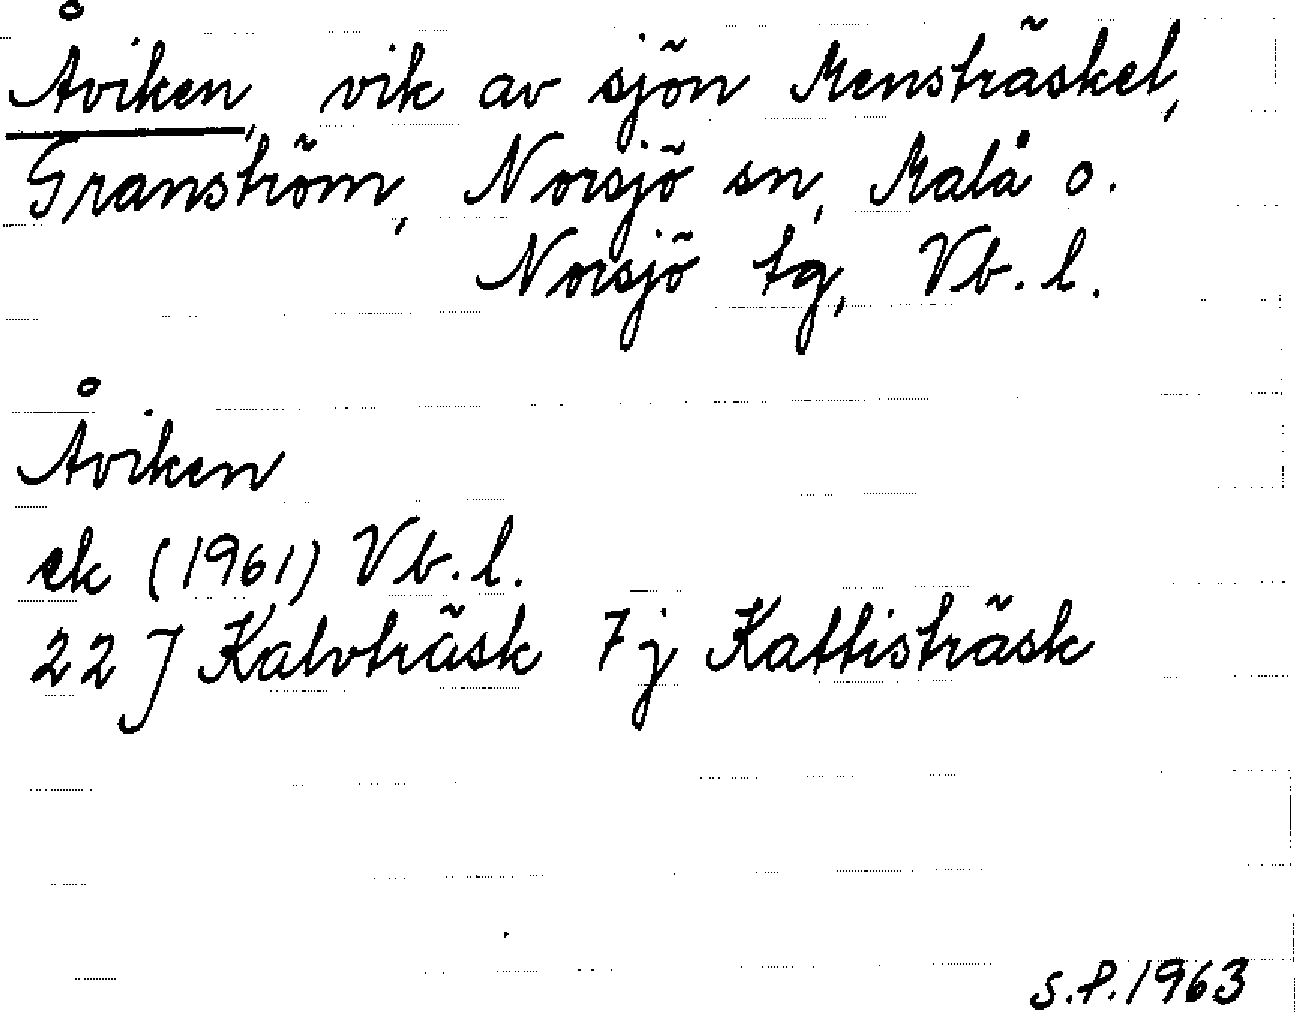 Åviken, vik av sjön Mensträsket,
Granström, Norsjö sn, Malå o.
Norsjö tg, Vb. l.
Åviken
ek (1961) Vb. l.
22 J Kalvträsk 7j Kattisträsk
S.P. 1963